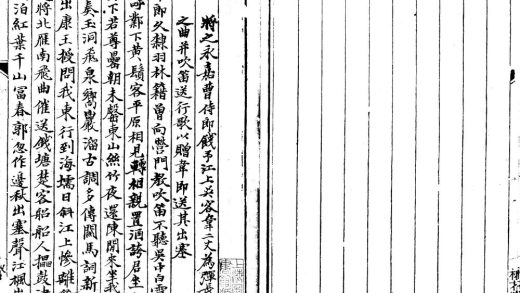 將之永嘉曹侍郎餞予江上吳客韋二丈為彈
之曲并吹笛送行歌以贈韋即送其出塞
郎久隸羽林籍曾向營門教吹笛不聽吳中白雪
時鄴下黃鬚客平原相見轉相親置酒誇君坐
下若尊罍朝未罄東山絲竹夜還陳閒來坐我
奏玉洞飛泉響巖溜古調多傳關馬詞新
出康王授問我東行到海壖日斜江上慘離
將北雁南飛曲催送錢塘楚客船船人攂鼓
泊紅葉千山富春郭忽作邊秋出塞聲江楓